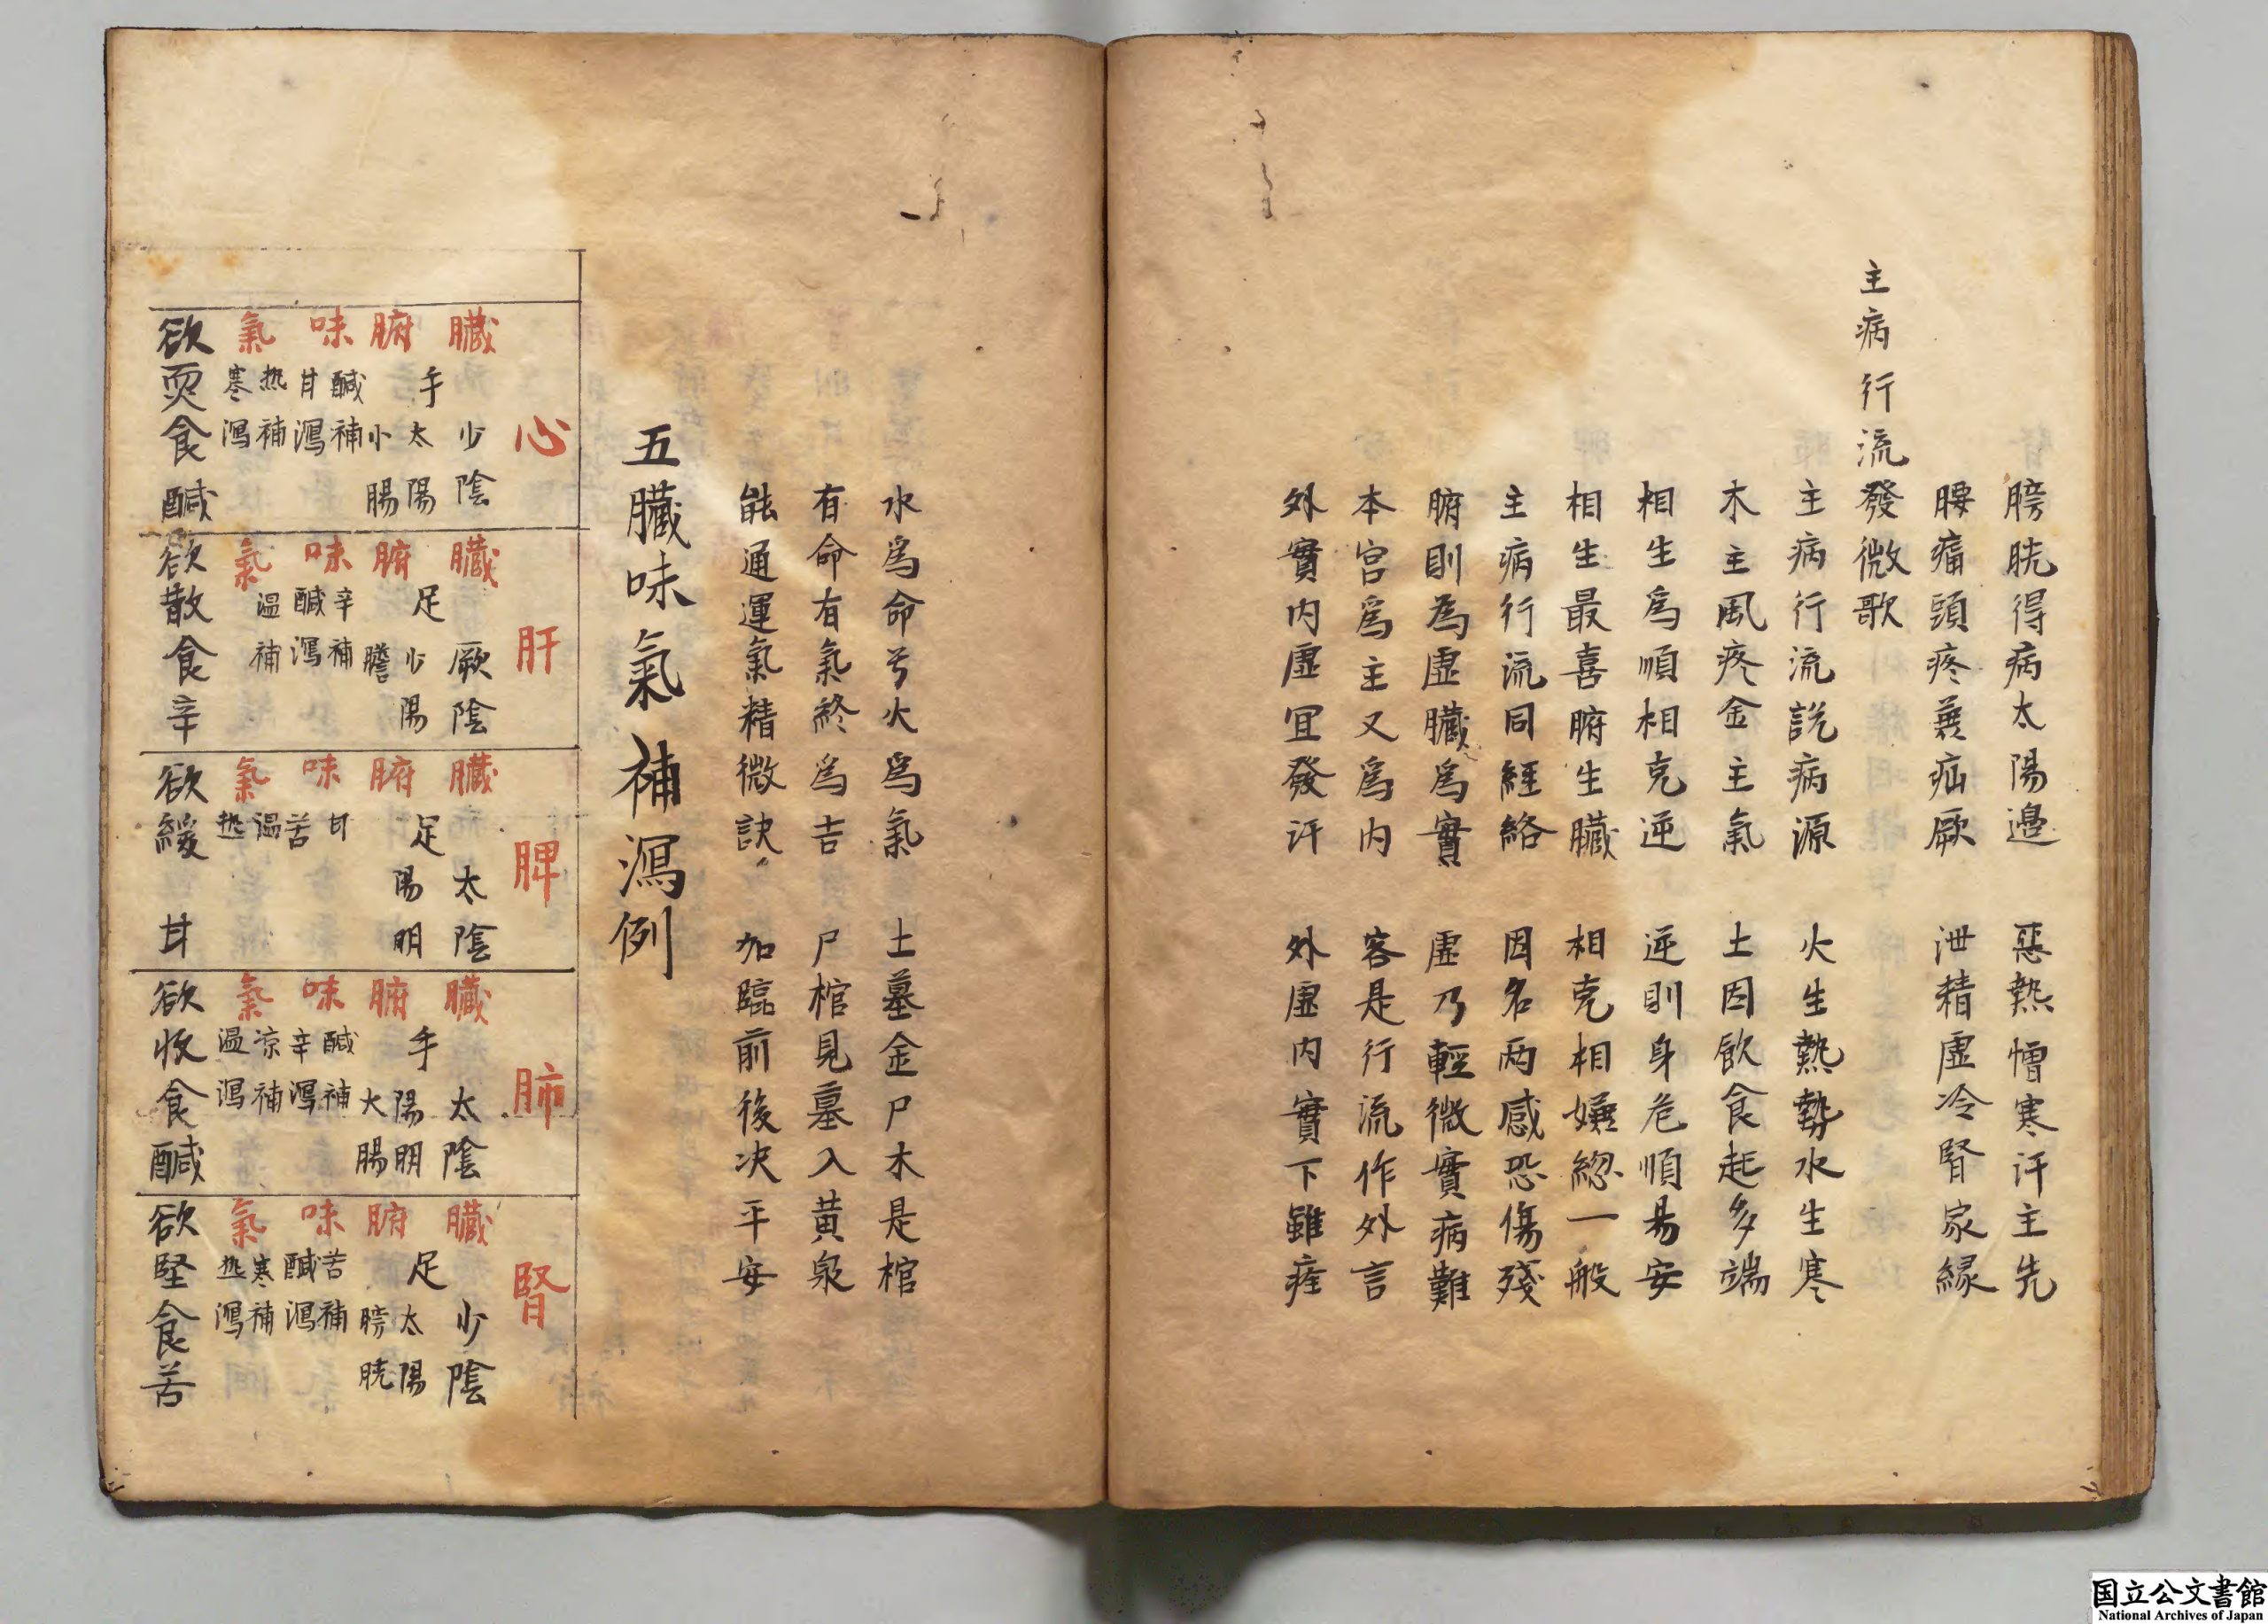 膀胱得病太陽邊　惡熱憎寒汗主先
腰痛頭疼兼疝厥　泄精虛冷腎家緣
主病行流發微歌
主病行流說病源　火生熱勢水生寒
木主風疼金主氣　土因飲食起多端
相生爲順相克逆　逆則身危順易安
相生最喜腑生臟　相克相嫌總一般
主病行流同經絡　因名兩感恐傷殘
腑則為虛臟爲實　虛乃輕微實病難
本宮爲主又爲内　客是行流作外言
外實内虛宜發汗　外虛内實下雖痊
水爲命兮火爲氣　土墓金尸木是棺
有命有氣終爲吉　尸棺見墓入黃泉
能通運氣精微訣　加臨前後决平安
五臟味氣補瀉例
心
臟　手少陰
腑　太陽小腸
味　鹹補甘瀉
氣　热補寒瀉
欲耎食鹹
肝
臟　足厥陰
腑　少陽膽
味　辛補鹹瀉
氣　温補
欲散食辛
脾
臟　足太陰
腑　陽明
味　甘苦
氣　温热
欲緩　甘
肺
臟　手太陰
腑　陽明大腸
味　鹹補辛瀉
氣　凉補温瀉
欲收食鹹
腎
臟　足少陰
腑　太陽膀胱
味　苦補鹹瀉
氣　寒補热瀉
欲堅食苦
国立公文書館
National Archives of Japan